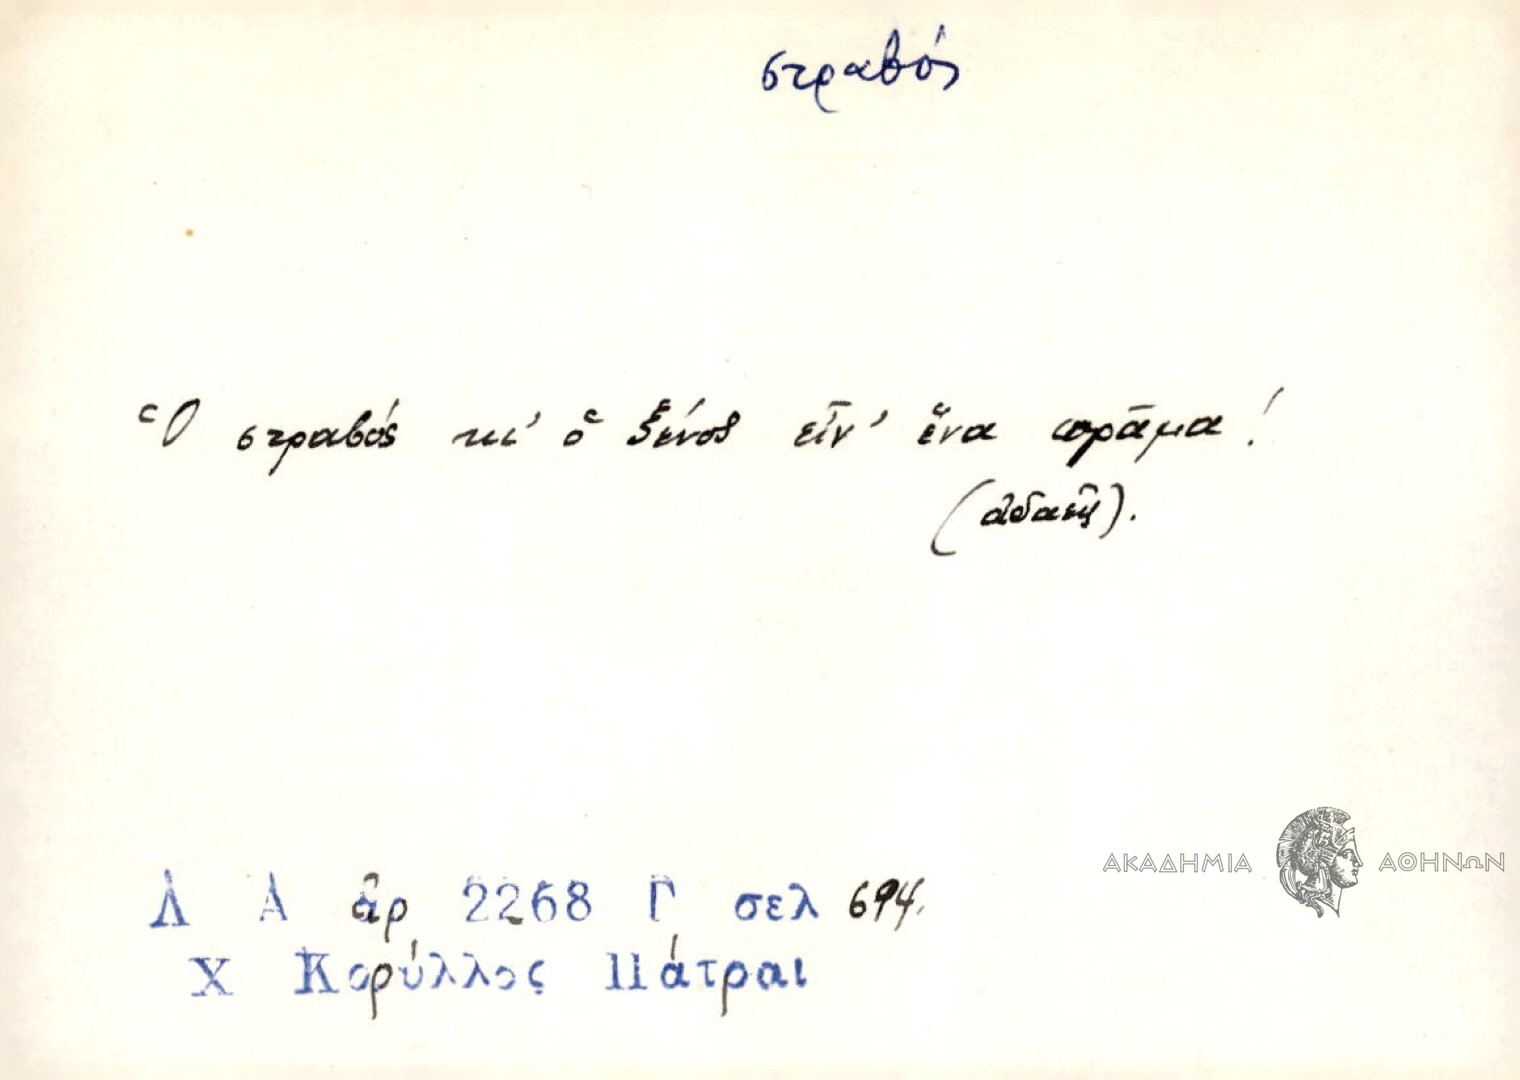 στραβός
Ὁ στραβός κι' ὁ ξένος εἶν' ἕνα πρᾶμα!
(ἀδαής).
Λ Α ἀρ 2268 Γ σελ 694.
Χ Κορύλλος Πάτραι
ΑΚΑΔΗΜΙΑ ΑΘΗΝΩΝ